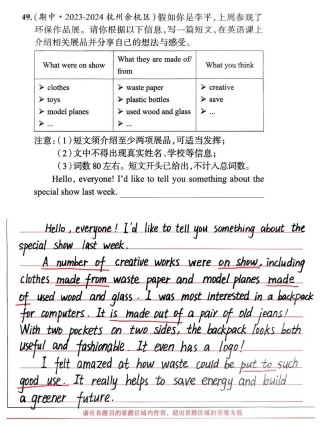 49.(期中·2023-2024杭州余杭区)假如你是李平,上周参观了
环保作品展。请你根据以下信息,写一篇短文,在英语课上
介绍相关展品并分享自己的想法与感受。
What were on show
What they are made of/from
What you think
➢ clothes
➢ toys
➢ model planes
➢ ...
➢ waste paper
➢ plastic bottles
➢ used wood and glass
➢ ...
➢ creative
➢ save
➢ ...
注意:(1)短文须介绍至少两项展品,可适当发挥;
(2)文中不得出现真实姓名、学校等信息;
(3)词数80左右。短文开头已给出,不计入总词数。
Hello, everyone! I'd like to tell you something about the
special show last week.
Hello, everyone! I'd like to tell you something about the
special show last week.
A number of creative works were on show, including
clothes made from waste paper and model planes made
of used wood and glass. I was most interested in a backpack
for computers. It is made out of a pair of old jeans!
With two pockets on two sides, the backpack looks both
useful and fashionable. It even has a logo!
I felt amazed at how waste could be put to such
good use. It really helps to save energy and build
a greener future.
请在各题目的答题区域内作答,超出答题区域的答案无效